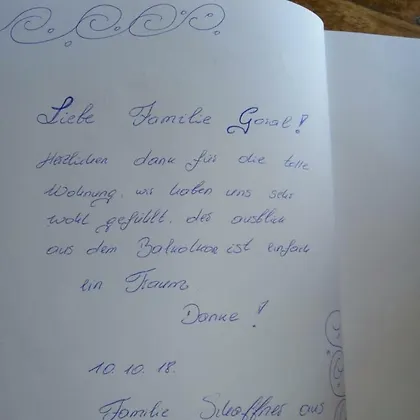 Liebe Familie Goral!
Herzlichen dank für die tolle
Wohnung. wir haben uns sehr
wohl gefühlt. der ausblick
aus dem ist einfach
ein Traum
Danke!
10.10.18.
Familie Schaffner aus